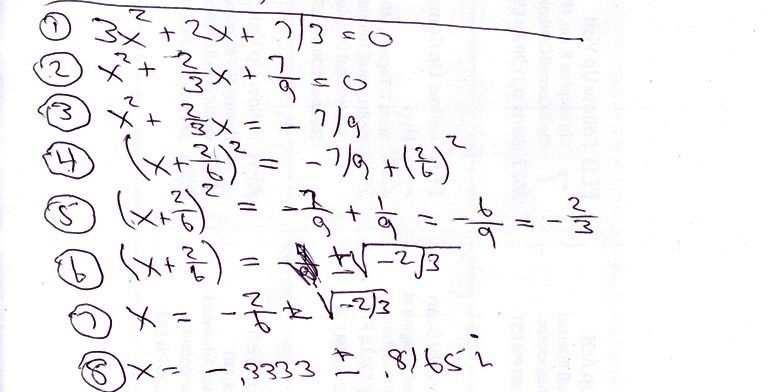 ① 3x² + 2x + 7/3 = 0
② x² + 2/3 x + 7/9 = 0
③ x² + 2/3 x = - 7/9
④ (x + 2/6)² = - 7/9 + (2/6)²
⑤ (x + 2/6)² = - 7/9 + 1/9 = - 6/9 = - 2/3
⑥ (x + 2/6) = ±√-2/3
⑦ x = - 2/6 ± √-2/3
⑧ x = - .3333 ± .8165 i